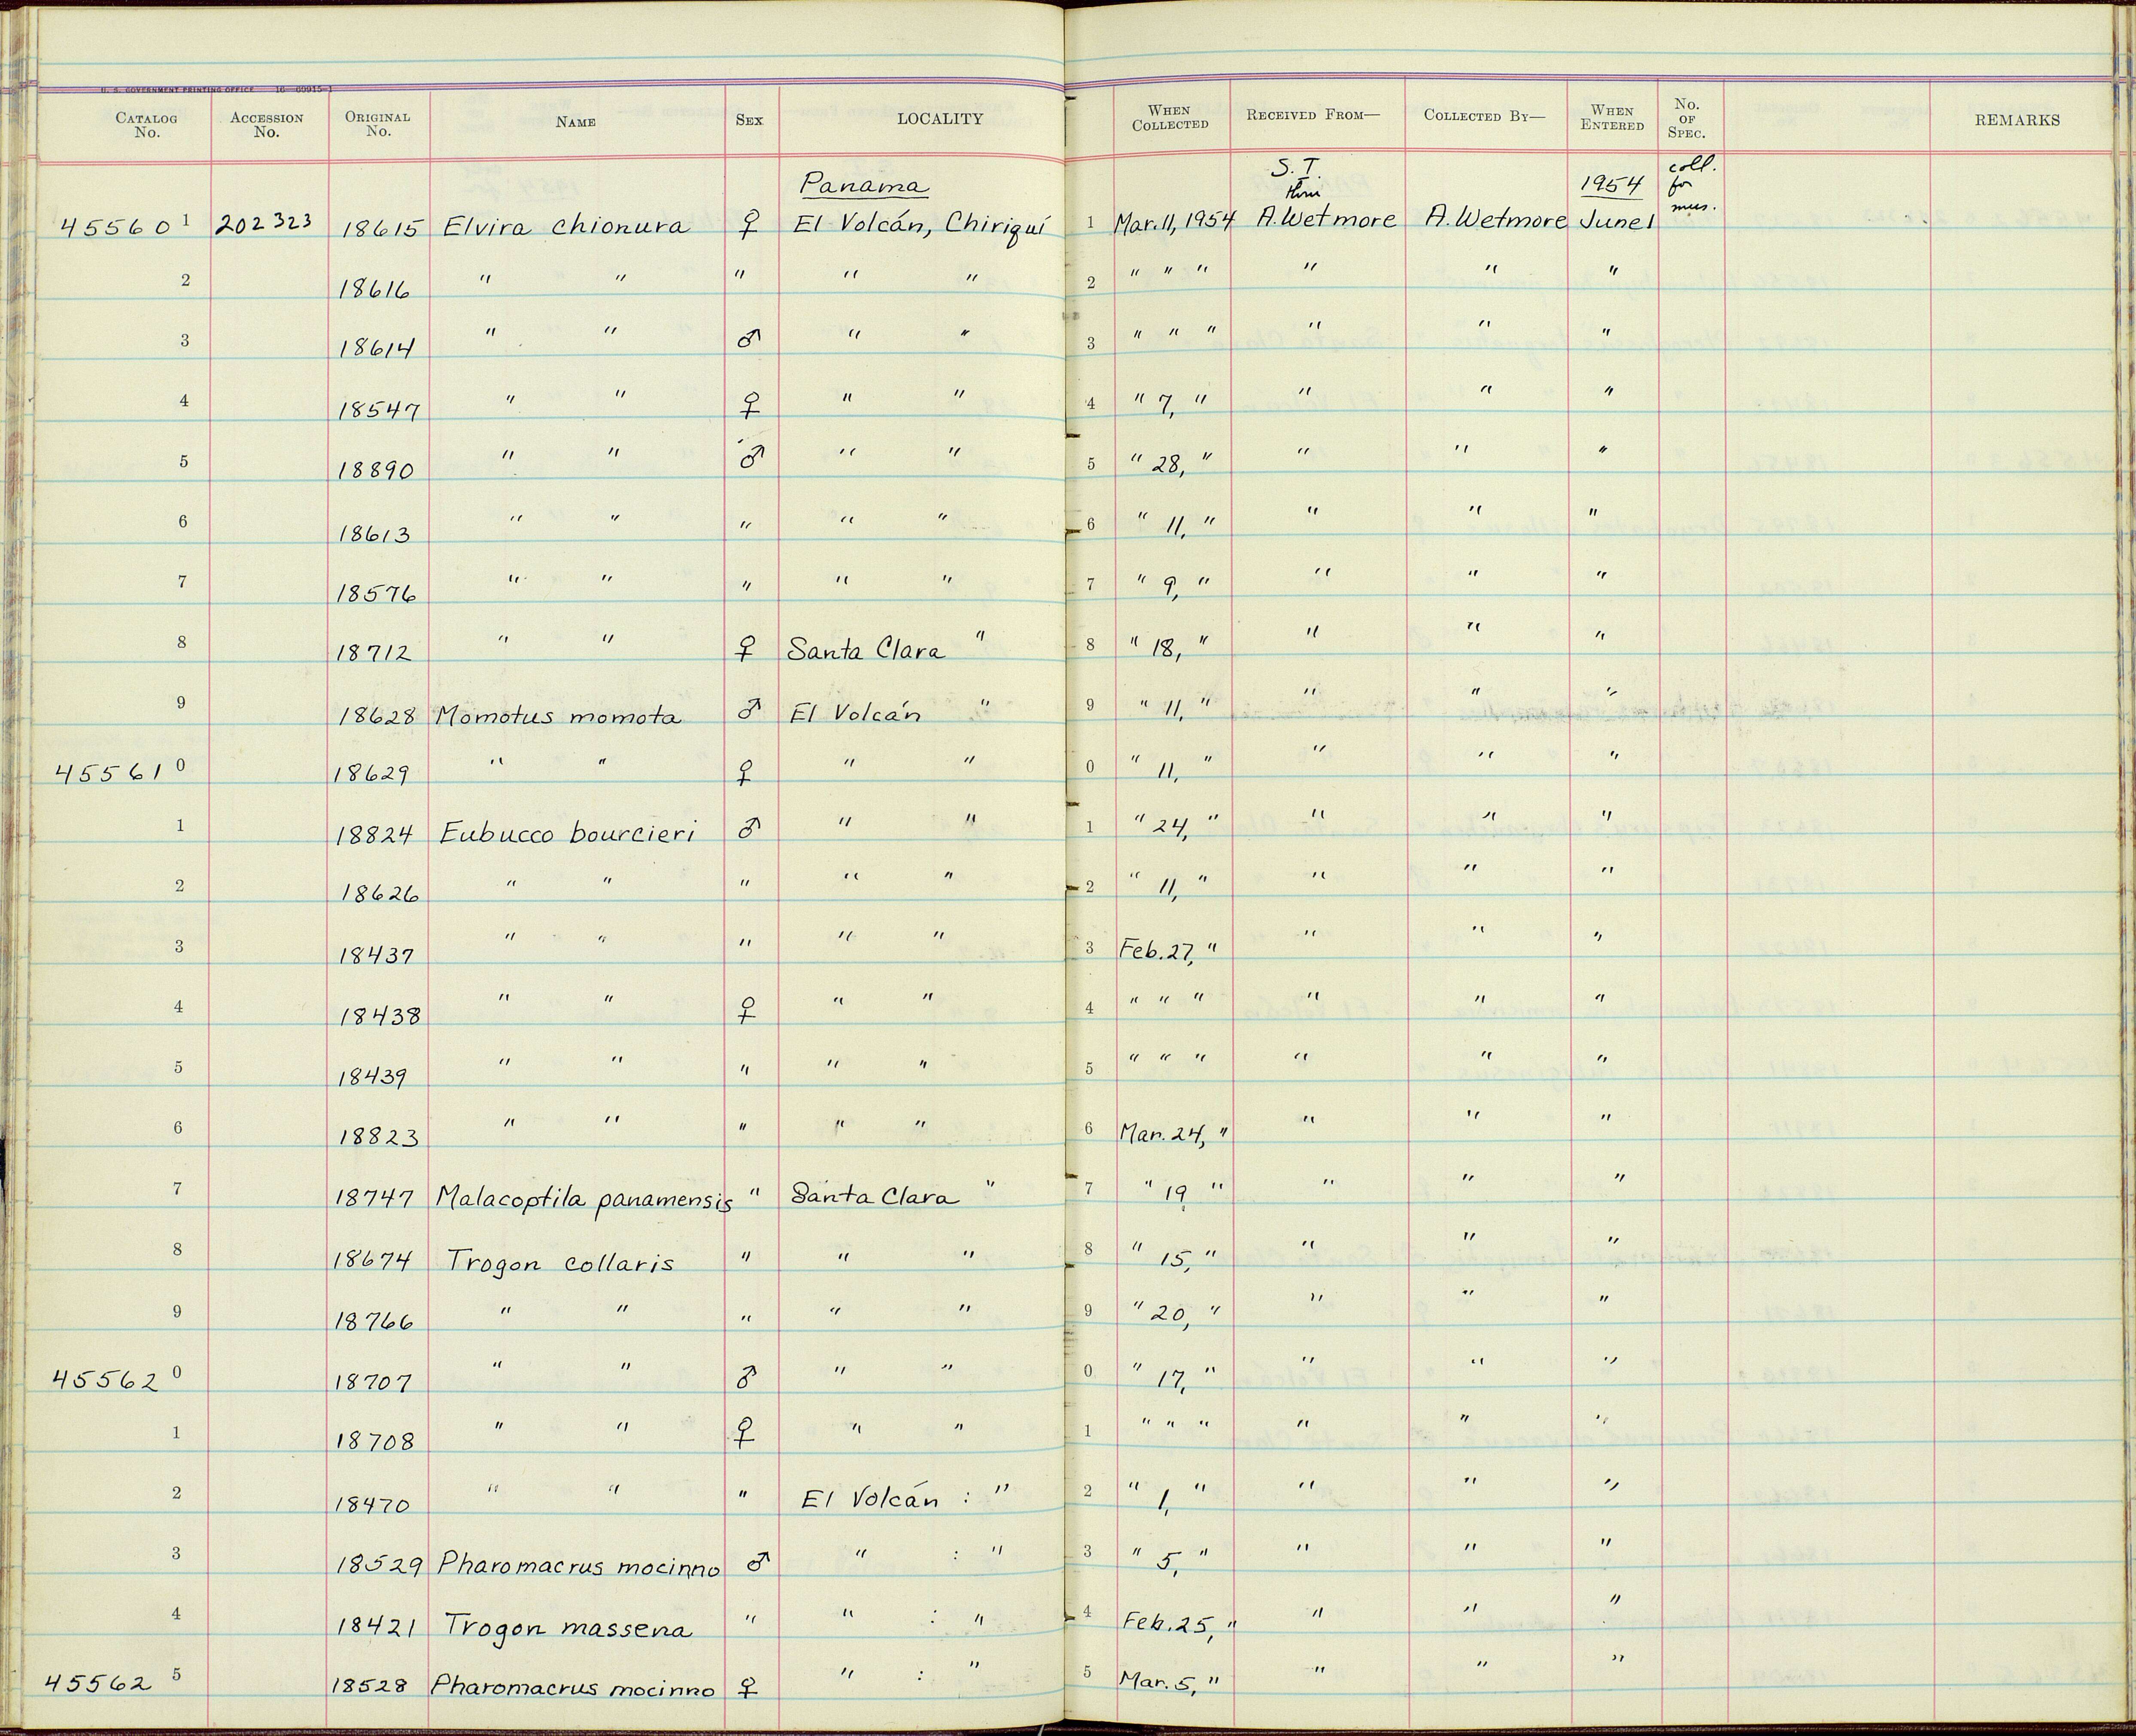 U. S. GOVERNMENT PRINTING OFFICE 16—60915-1
CATALOG No. ACCESSION No. ORIGINAL No. NAME SEX LOCALITY WHEN COLLECTED RECEIVED FROM— COLLECTED BY— WHEN ENTERED No. OF SPEC. REMARKS
Panama S. T. thru 1954 coll. for mus.
45560 1 202323 18615 Elvira chionura ♀ El Volcán, Chiriquí 1 Mar. 11, 1954 A. Wetmore A. Wetmore June 1
2 18616 " " " " " 2 " " " " " "
3 18614 " " ♂ " " 3 " " " " " "
4 18547 " " ♀ " " 4 " 7, " " " "
5 18890 " " ♂ " " 5 " 28, " " " "
6 18613 " " " " " 6 " 11, " " " "
7 18576 " " " " " 7 " 9, " " " "
8 18712 " " ♀ Santa Clara " 8 " 18, " " " "
9 18628 Momotus momota ♂ El Volcán " 9 " 11, " " " "
45561 0 18629 " " ♀ " " 0 " 11, " " " "
1 18824 Eubucco bourcieri ♂ " " 1 " 24, " " " "
2 18626 " " " " " 2 " 11, " " " "
3 18437 " " " " " 3 Feb. 27, " " " "
4 18438 " " ♀ " " 4 " " " " " "
5 18439 " " " " " 5 " " " " " "
6 18823 " " " " " 6 Mar. 24, " " " "
7 18747 Malacoptila panamensis " Santa Clara " 7 " 19, " " " "
8 18674 Trogon collaris " " " 8 " 15, " " " "
9 18766 " " " " " 9 " 20, " " " "
45562 0 18707 " " ♂ " " 0 " 17, " " " "
1 18708 " " ♀ " " 1 " " " " " "
2 18470 " " " El Volcán : " 2 " 1, " " " "
3 18529 Pharomacrus mocinno ♂ " : " 3 " 5, " " " "
4 18421 Trogon massena " " : " 4 Feb. 25, " " " "
45562 5 18528 Pharomacrus mocinno ♀ " : " 5 Mar. 5, " " " "